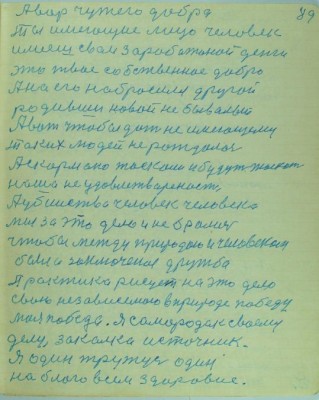 Автор чужего добра 49
Ты имеющие лицо человек
имеещ свои заработаной денги
это твое собственное добро
А на его набросился другой
родивши новой не бывалый
А вот чтобы дат не имеющему
таких людей не рождалос
А скармано таскали и будут таскат
наша не удовлетварёност,
А убийства человек человека
мы за это дело и не
чтобы между природою и человеком
была заключеная дружба
Практика рисует на это дело
свою независемою в природе победу
моя победа. Я самородак своему
делу, закалка источник.
Я один тружус один
на благо всем здоровие.